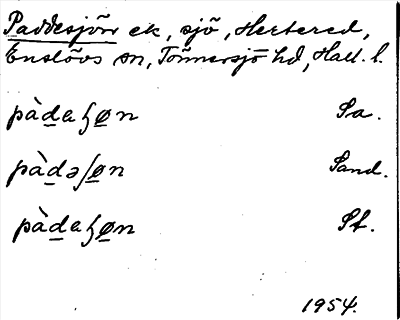 Paddesjön ek, sjö, Hertered,
Enslövs sn, Tönnersjö hd, Hall. l.
pàdaɧøn Sa.
pàdəʃøn Sand.
pàdaɧøn St.
1954.